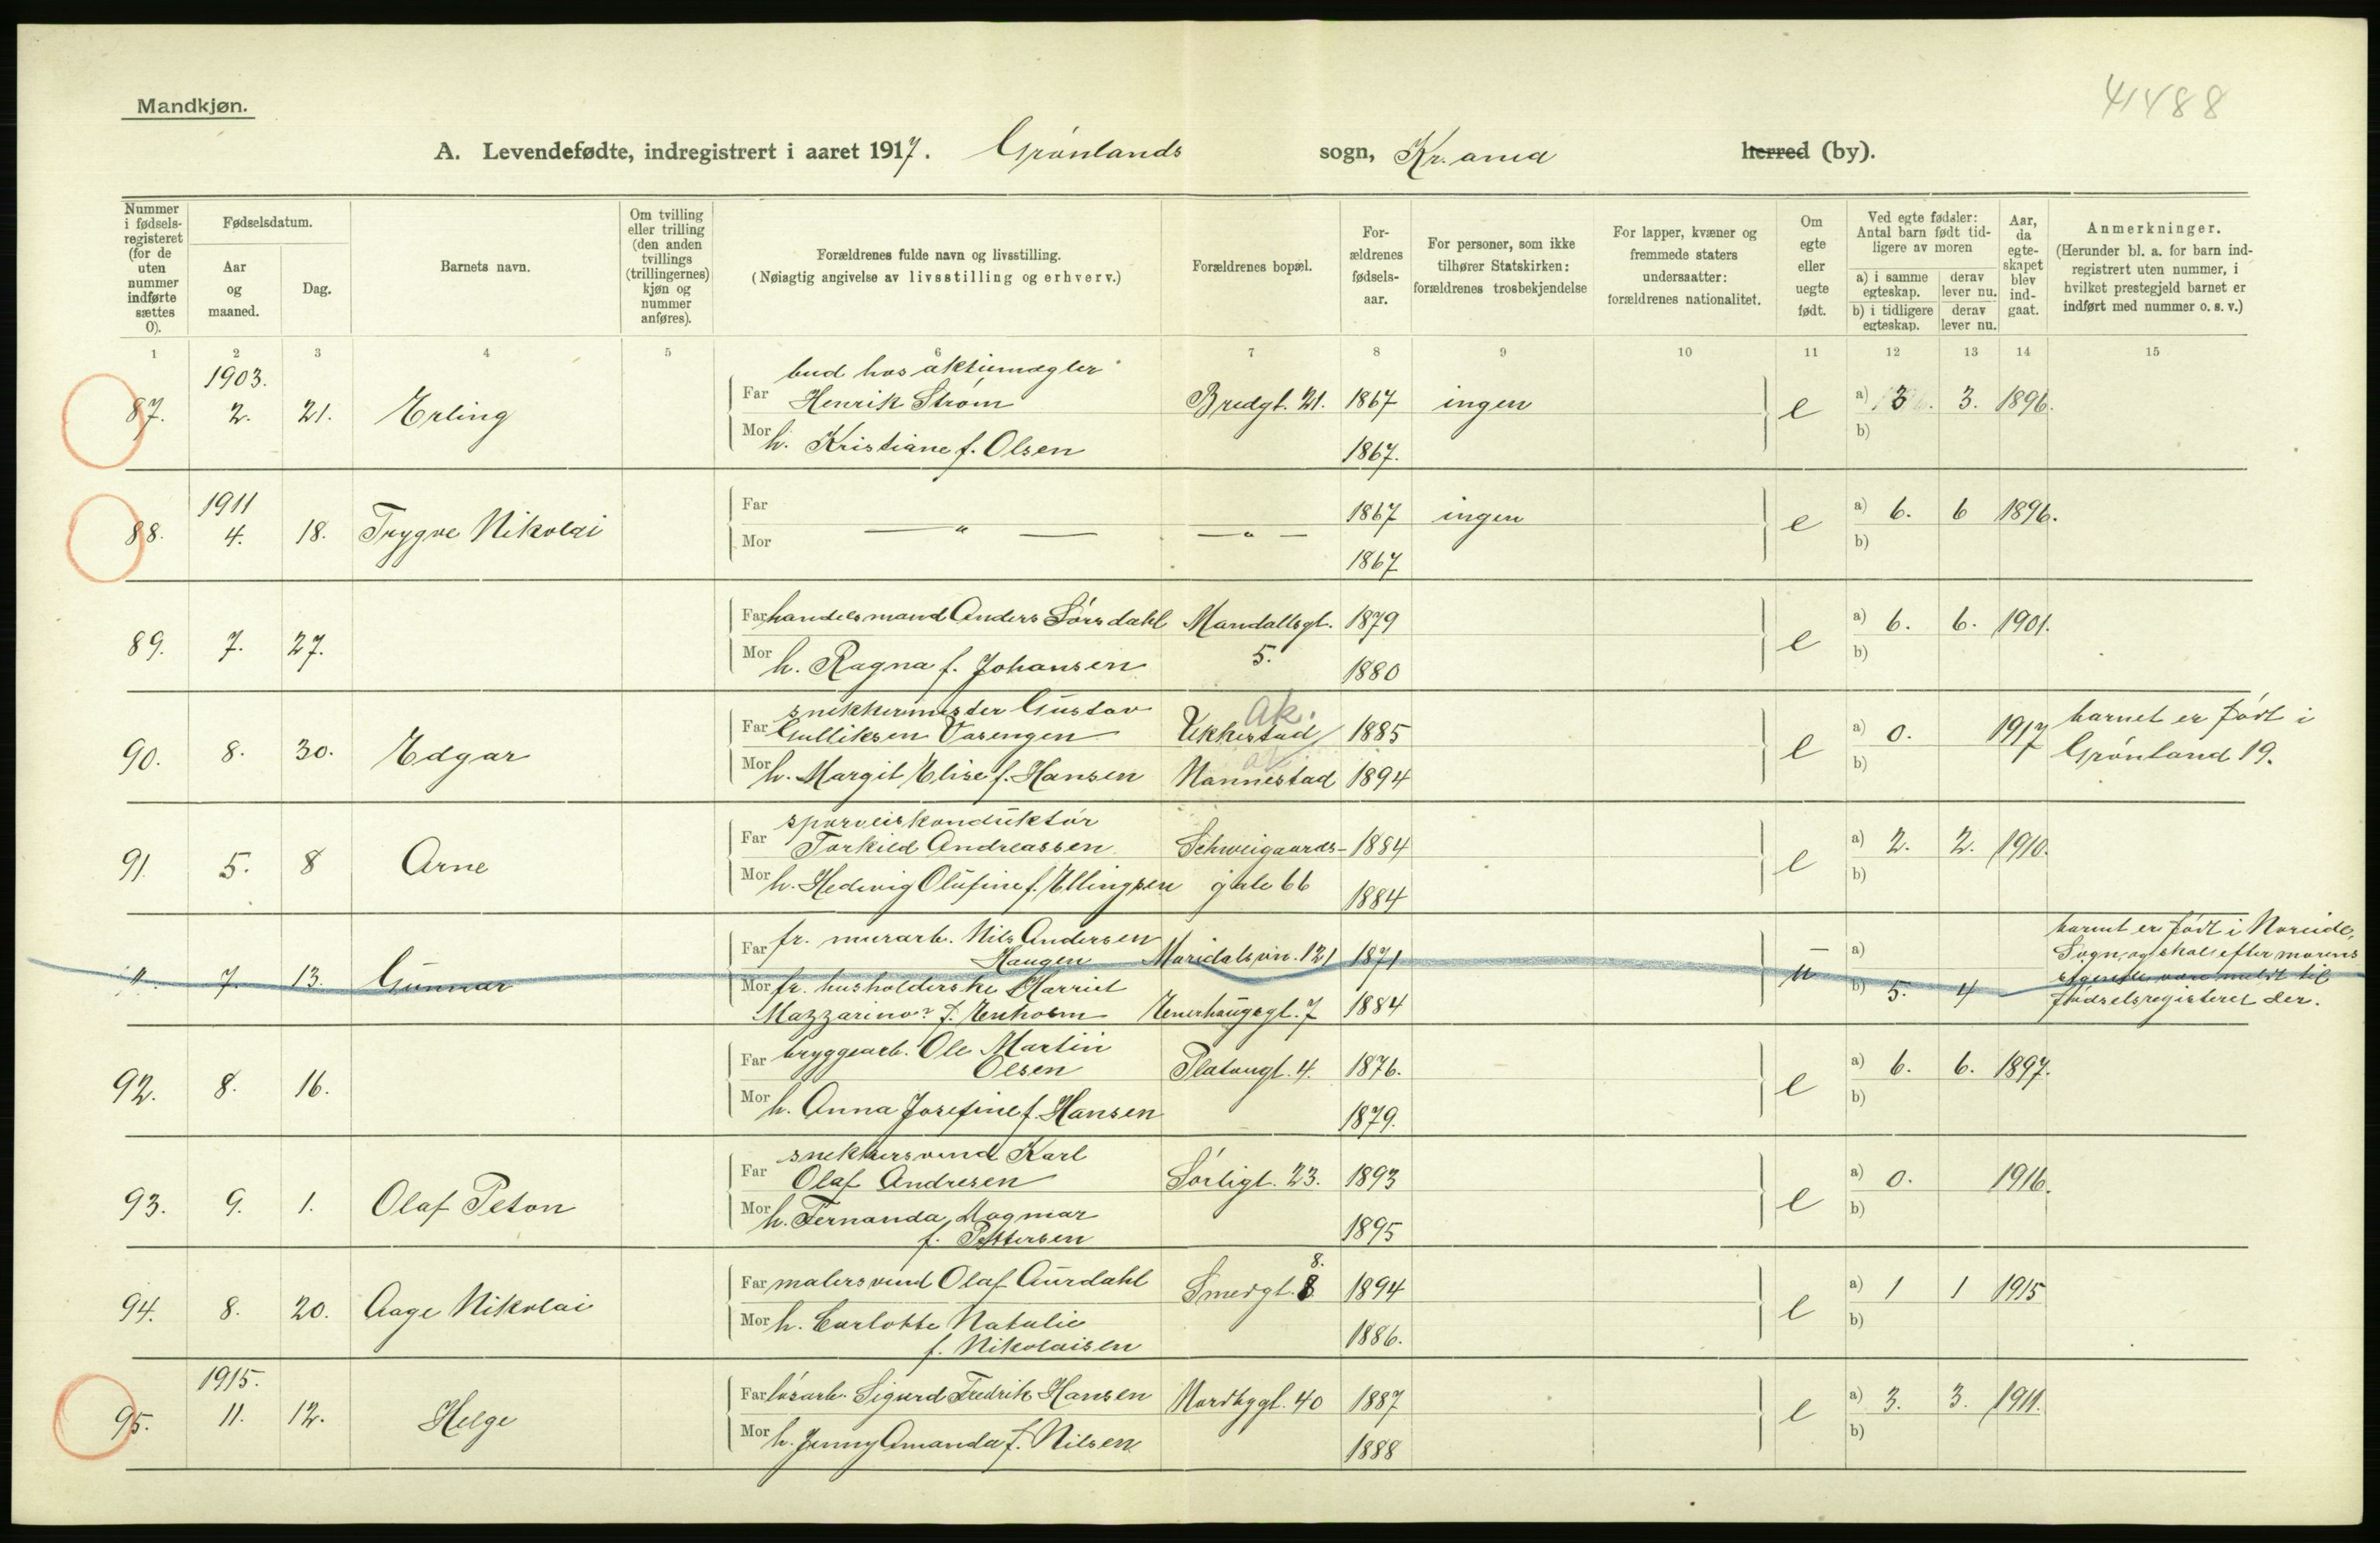 Mandkjøn.
41488
A. Levendefødte, indregistrert i aaret 1917. Grønlands sogn, Kr.ania herred (by).
Nummer i fødsels-registeret (for de uten nummer indførte sættes 0).
Fødselsdatum.
Aar og maaned.
Dag.
Barnets navn.
Om tvilling eller trilling (den anden tvillings (trillingernes) kjøn og nummer anføres).
Forældrenes fulde navn og livsstilling.
(Nøiagtig angivelse av livsstilling og erhverv.)
Forældrenes bopæl.
For-ældrenes fødsels-aar.
For personer, som ikke tilhører Statskirken: forældrenes trosbekjendelse
For lapper, kvæner og fremmede staters undersaatter: forældrenes nationalitet.
Om egte eller uegte født.
Ved egte fødsler: Antal barn født tid-ligere av moren
a) i samme egteskap. derav lever nu.
b) i tidligere egteskap. derav lever nu.
Aar, da egte-skapet blev ind-gaat.
Anmerkninger.
(Herunder bl. a. for barn ind-registrert uten nummer, i hvilket prestegjeld barnet er indført med nummer o. s. v.)
1 2 3 4 5 6 7 8 9 10 11 12 13 14 15
1903. bud hos aktiemægler
87. 2. 21. Erling Far Henrik Strøm Bredgt. 21. 1867 ingen e a) 3 3. 1896.
Mor h. Kristiane f. Olsen 1867. b)
1911
88. 4. 18. Trygve Nikolai Far — " — — " — 1867 ingen e a) 6. 6 1896.
Mor 1867 b)
89. 7. 27. Far handelsmand Anders Sørsdahl Mandallsgt. 1879 e a) 6. 6. 1901.
Mor h. Ragna f. Johansen 5. 1880 b)
snekkermester Gustav Ak.
90. 8. 30. Edgar Far Gulliksen Vasengen Ukkestad 1885 e a) 0. 1917 barnet er født i
Mor h. Margit Elise f. Hansen Nannestad 1894 b) Grønland 19.
sporveiskonduktør
91. 5. 8 Arne Far Torkild Andreassen Schweigaards- 1884 e a) 2. 2. 1910.
Mor h. Hedevig Olufine f. Ellingsen gate 66 1884 b)
Far fr. murarb. Nils Andersen barnet er født i
Haugen Maridalsvn. 121 1871 a) Sogn, og skal efter morens
". 7. 13. Gunnar Mor fr. husholderske Harriet u b) 5. 4
Mazzarino? f. Enholm Enerhaugsgt. 7 1884 fødselsregisteret der.
Far bryggearb. Ole Martin
92. 8. 16. Olsen Platougt. 4. 1876. e a) 6. 6. 1897.
Mor h. Anna Josefine f. Hansen 1879. b)
snekkersvend Karl
93. 9. 1. Olaf Peton Far Olaf Andresen Sørligt. 23. 1893 e a) 0. 1916.
Mor h. Fernanda Dagmar b)
f. Pettersen 1895
94. 8. 20. Aage Nikolai Far malersvend Olaf Aurdahl Smedgt. 8 8. 1894 e a) 1 1 1915
Mor h. Carlotte Natalie b)
f. Nikolaisen 1886.
1915.
95. 11. 12. Helge Far løsarb. Sigurd Fredrik Hansen Nordbygt. 40 1887 e a) 3. 3. 1911.
Mor h. Jenny Amanda f. Nilsen 1888 b)